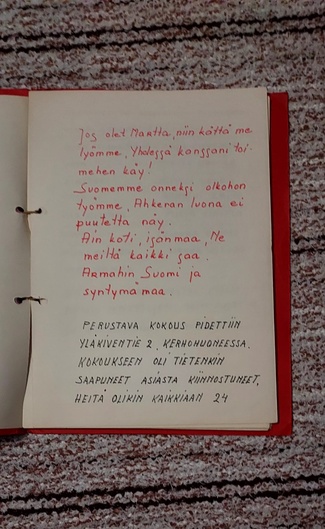 Jos olet Martta, niin kättä me
lyömme, Yhdessä kanssani toi-
mehen käy!
Suomemme onneksi olkohon
työmme, Ahkeran luona ei
puutetta näy.
Ain koti, isänmaa, Ne
meiltä kaikki saa.
Armahin Suomi ja
syntymämaa.
PERUSTAVA KOKOUS PIDETTIIN
YLÄKIVENTIE 2. KERHOHUONEESSA.
KOKOUKSEEN OLI TIETENKIN
SAAPUNEET ASIASTA KIINNOSTUNEET,
HEITÄ OLIKIN KAIKKIAAN 24